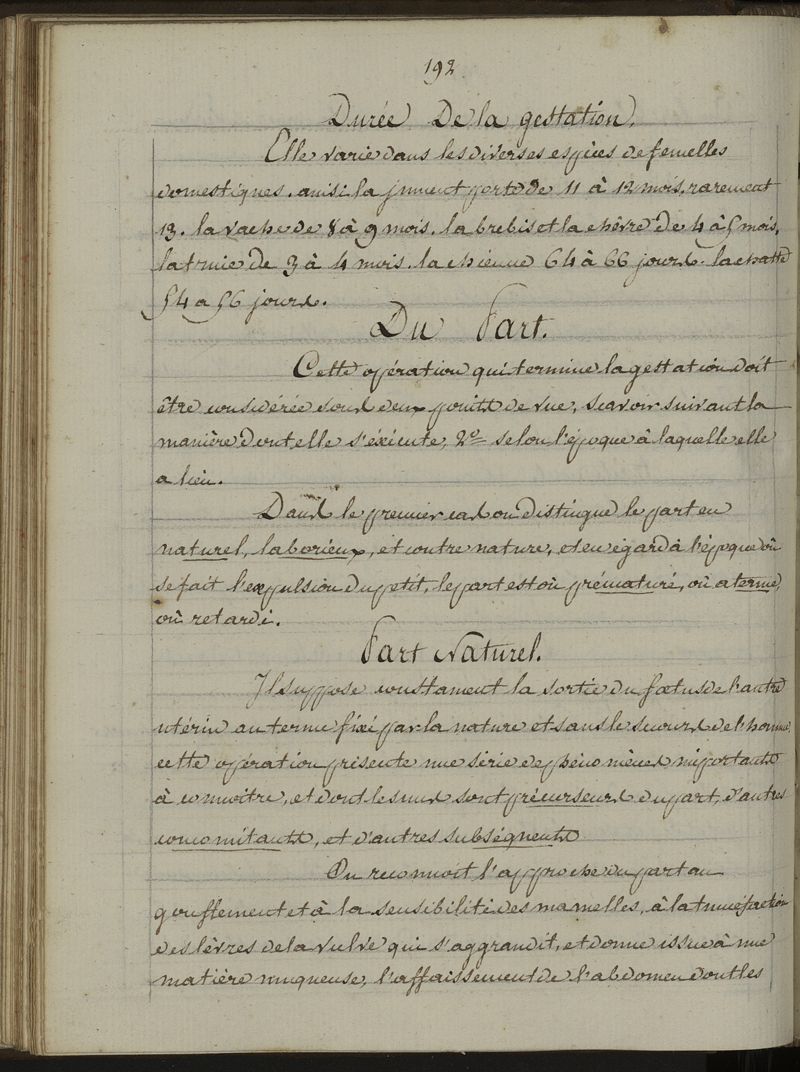 192
Durée De la gestation.
Elle varie dans les diverses espèces de femelles
domestiques. ainsi la jument porte de 11 à 12 mois, rarement
13. la vache de 8 à 9 mois. la brebis et la chèvre de 4 à 5 mois,
la truie de 3 à 4 mois. la chienne 64 à 66 jours. la chatte
54 a 56 jours.
Du Part.
Cette opération qui termine la gestation doit
être considérée sous deux points de vue, scavoir suivant la
manière dont elle s'éxécute, 2º selon l'époque à laquelle elle
a lieu.
Dans le premier cas on distingue le part en
naturel, laborieux, et contre nature, et eu égard à l'époque où
se fait l'expulsion du petit, le part est où prématuré, où a terme,
où retardé.
Part Naturel.
Il suppose constament la sortie du fœtus de l'antre
utérin au terme fixé par la nature et sans le secours de l'homme,
cette opération présente une série de phénomènes importants
à connoitre, et dont les uns sont précurseurs du part, d'autres
concomitants, et d'autres subséquents
On reconnoit l'approche du part au
gonflement et à la sensibilité des mamelles, à la tuméfaction
des lèvres de la vulve qui s'aggrandit, et donne issue à une
matière muqueuse, l'affaissement de l'abdomen dont les